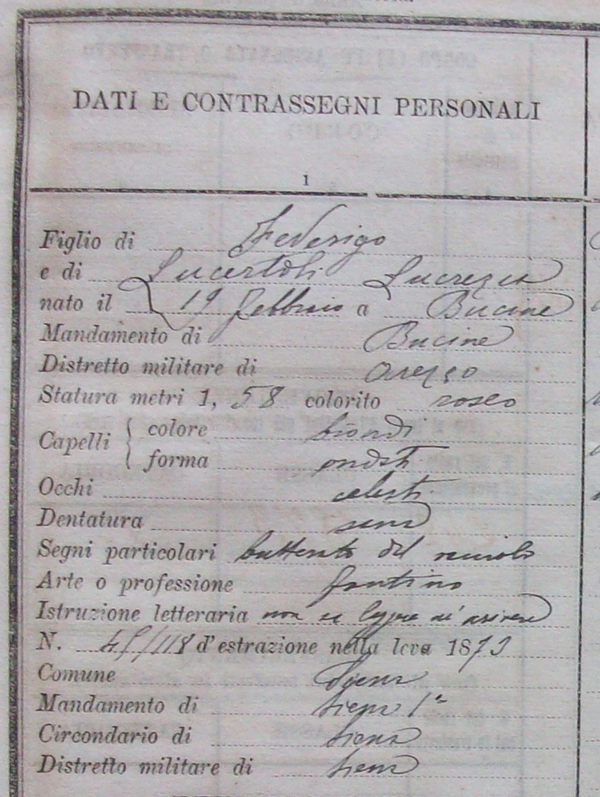 DATI E CONTRASSEGNI PERSONALI
1
Figlio di Federigo
e di Lucertoli Lucrezia
nato il 19 febbraio a Bucine
Mandamento di Bucine
Distretto militare di Arezzo
Statura metri 1, 58 colorito roseo
Capelli { colore biondi
forma ondati
Occhi celesti
Dentatura sana
Segni particolari butterato del vaiuolo
Arte o professione fantino
Istruzione letteraria non sa leggere né scrivere
N. 118 d'estrazione nella leva 1873
Comune Siena
Mandamento di Siena 1°
Circondario di Siena
Distretto militare di Siena